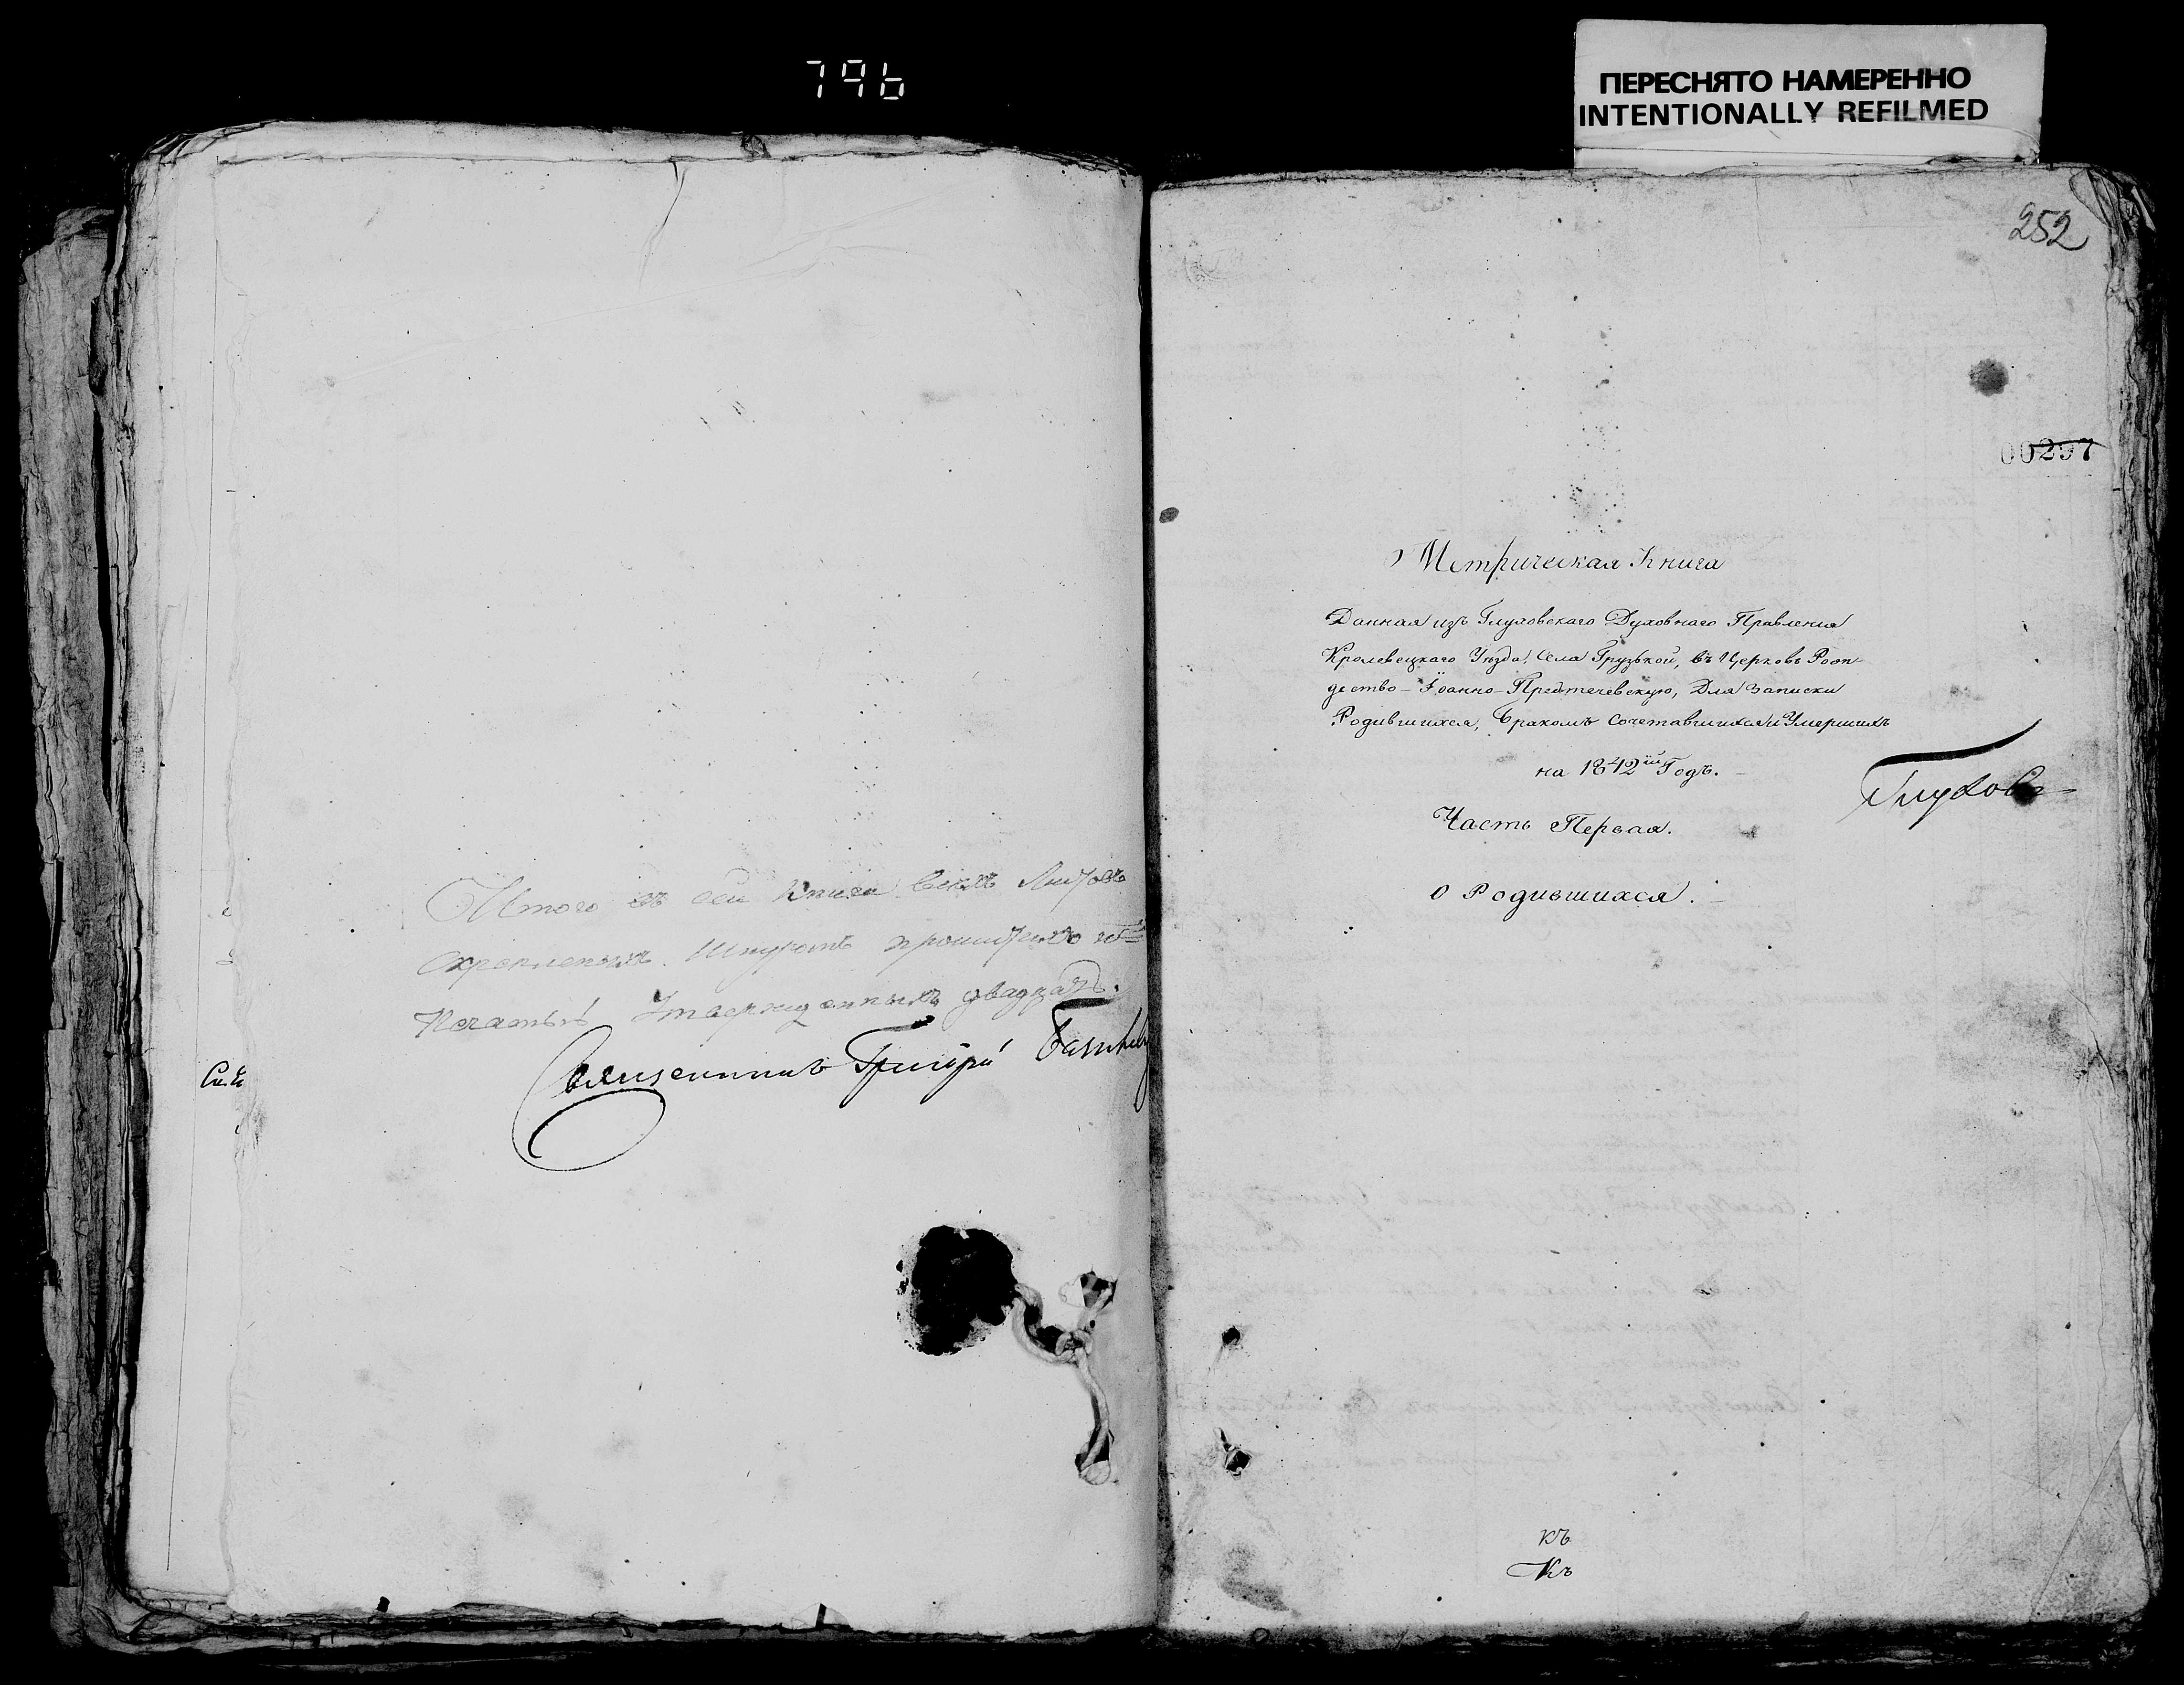 796
ПЕРЕСНЯТО НАМЕРЕННО
INTENTIONALLY REFILMED
Итого въ сей Книги всехъ Листовъ
скрепленыхъ Шнуромъ прошитыхъ и
Печатью Утвержденныхъ двадцать.
Священникъ Григорій
252
00297
Метрическая Книга
Данная изъ Глуховскаго Духовнаго Правления
Кролевецкаго Уѣзда, Села Грузькой, въ Церковь Рож-
дество-Іоанно-Предтечевскую, Для Записки
Родившихся, Бракомъ Сочетавшихся и Умершихъ
на 1842ій Годъ.
Глухов
Часть Первая.
О Родившихся.
къ
Къ